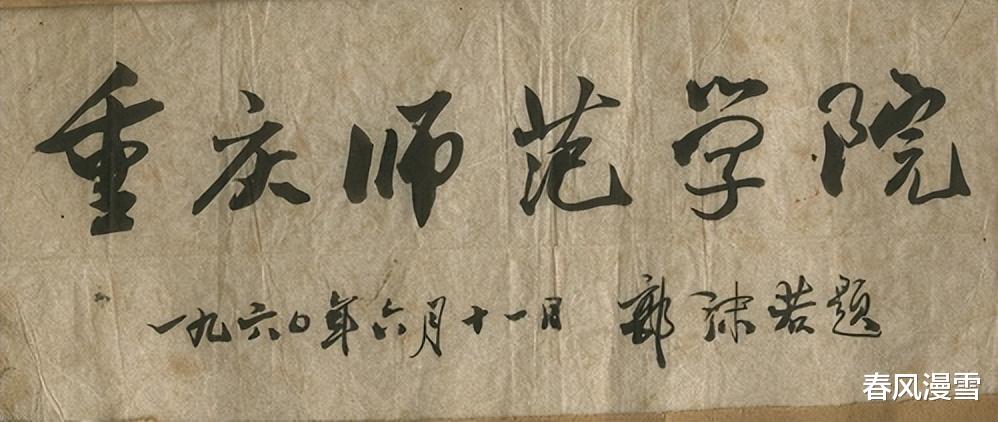 重庆师范学院
一九六〇年六月十一日 郭沫若题
春风漫雪